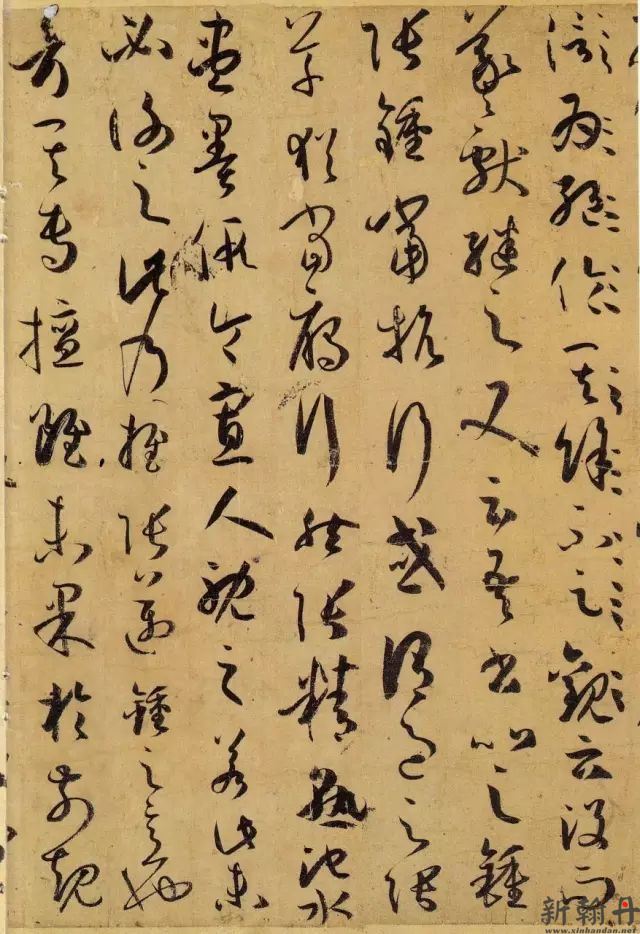 信為絕倫其餘不足觀云沒而
羲獻繼之又云吾書比之鍾
張鍾當抗行或謂過之張
草猶當鴈行然張精熟池水
盡墨假令寡人耽之若此未
必謝之此乃推張邁鍾之意也
考其專擅雖未果於前規
新翰丹
www.xinhandan.net